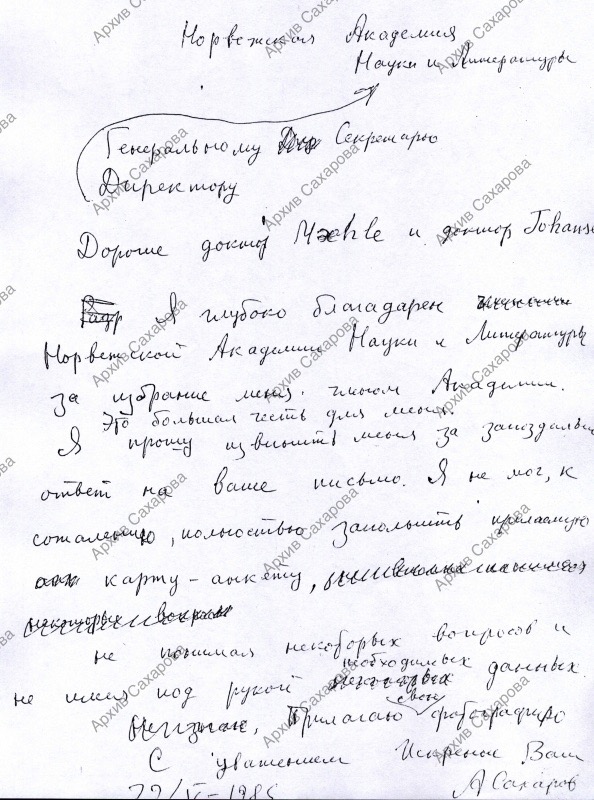 Норвежская Академия
Науки и Литературы
Генеральному Секретарю
Директору
Дорогие доктор Mæhle и доктор Johans
Я глубоко благодарен
Норвежской Академии Науки и Литературы
за избрание меня членом Академии.
Это большая честь для меня.
Я прошу извинить меня за запоздалый
ответ на ваше письмо. Я не мог, к
сожалению, полностью заполнить
карту-анкету,
не понимая некоторых вопросов и
необходимых данных.
не имея под рукой
свою
Прилагаю фотографию
С уважением Искренне Ваш
А Сахаров
Архив Сахарова